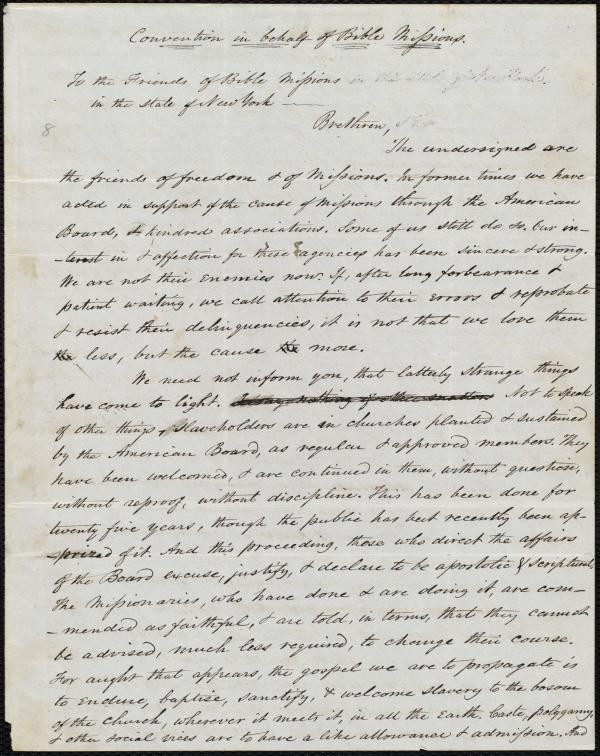 Convention in behalf of Bible Missions.
To the Friends of Bible Missions
in the State of New York —
8
Brethren,
The undersigned are
the friends of freedom & of Missions. In former times we have
acted in support of the cause of Missions through the American
Board, & kindred associations. Some of us still do so. Our in-
-terest in & affection for these agencies has been sincere & strong.
We are not their Enemies now. If, after long forbearance &
patient waiting, we call attention to their errors & reprobate
& resist their delinquencies, it is not that we love them
the less, but the cause the more.
We need not inform you, that latterly strange things
have come to light. To say nothing of other matters Not to speak
of other things, slaveholders are in churches planted & sustained
by the American Board, as regular & approved members. They
have been welcomed, & are continued in them, without question,
without reproof, without discipline. This has been done for
twenty five years, though the public has but recently been ap-
-prized of it. And this proceeding, those who direct the affairs
of the Board excuse, justify, & declare to be apostolic & scriptural,
The Missionaries, who have done & are doing it, are com-
-mended as faithful, & are told, in terms, that they cannot
be advised, much less required, to change their course.
For aught that appears, the gospel we are to propagate is
to endure, baptise, sanctify, & welcome slavery to the bosom
of the church, wherever it meets it, in all the Earth. Caste, polygamy,
& other social vices are to have a like allowance & admission. And